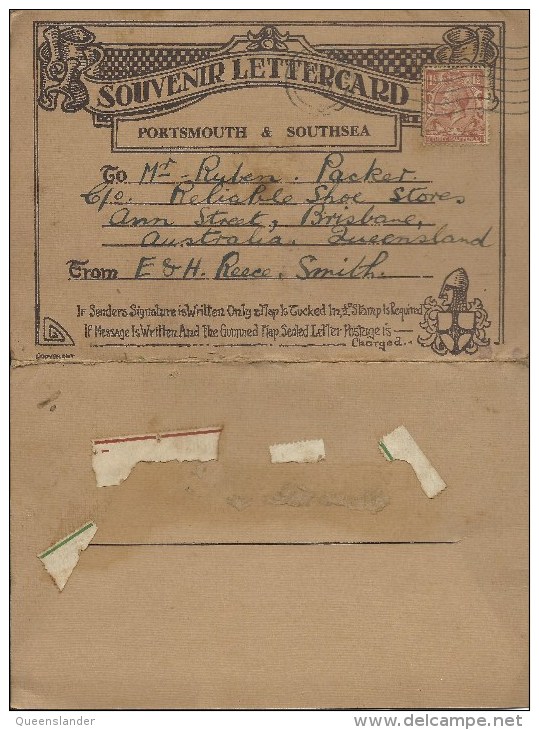 SOUVENIR LETTERCARD
PORTSMOUTH & SOUTHSEA
To Mr Ruben. Packer.
C/o. Reliable Shoe Stores
Ann Street, Brisbane,
Australia. Queensland
From E & H. Reece. Smith.
If Senders Signature is Written Only & Flap Is Tucked In, Stamp Is Required
If Message Is Written And The Gummed Flap Sealed Letter Postage is —
Charged..
COPYRIGHT
Queenslander
www.delcampe.net